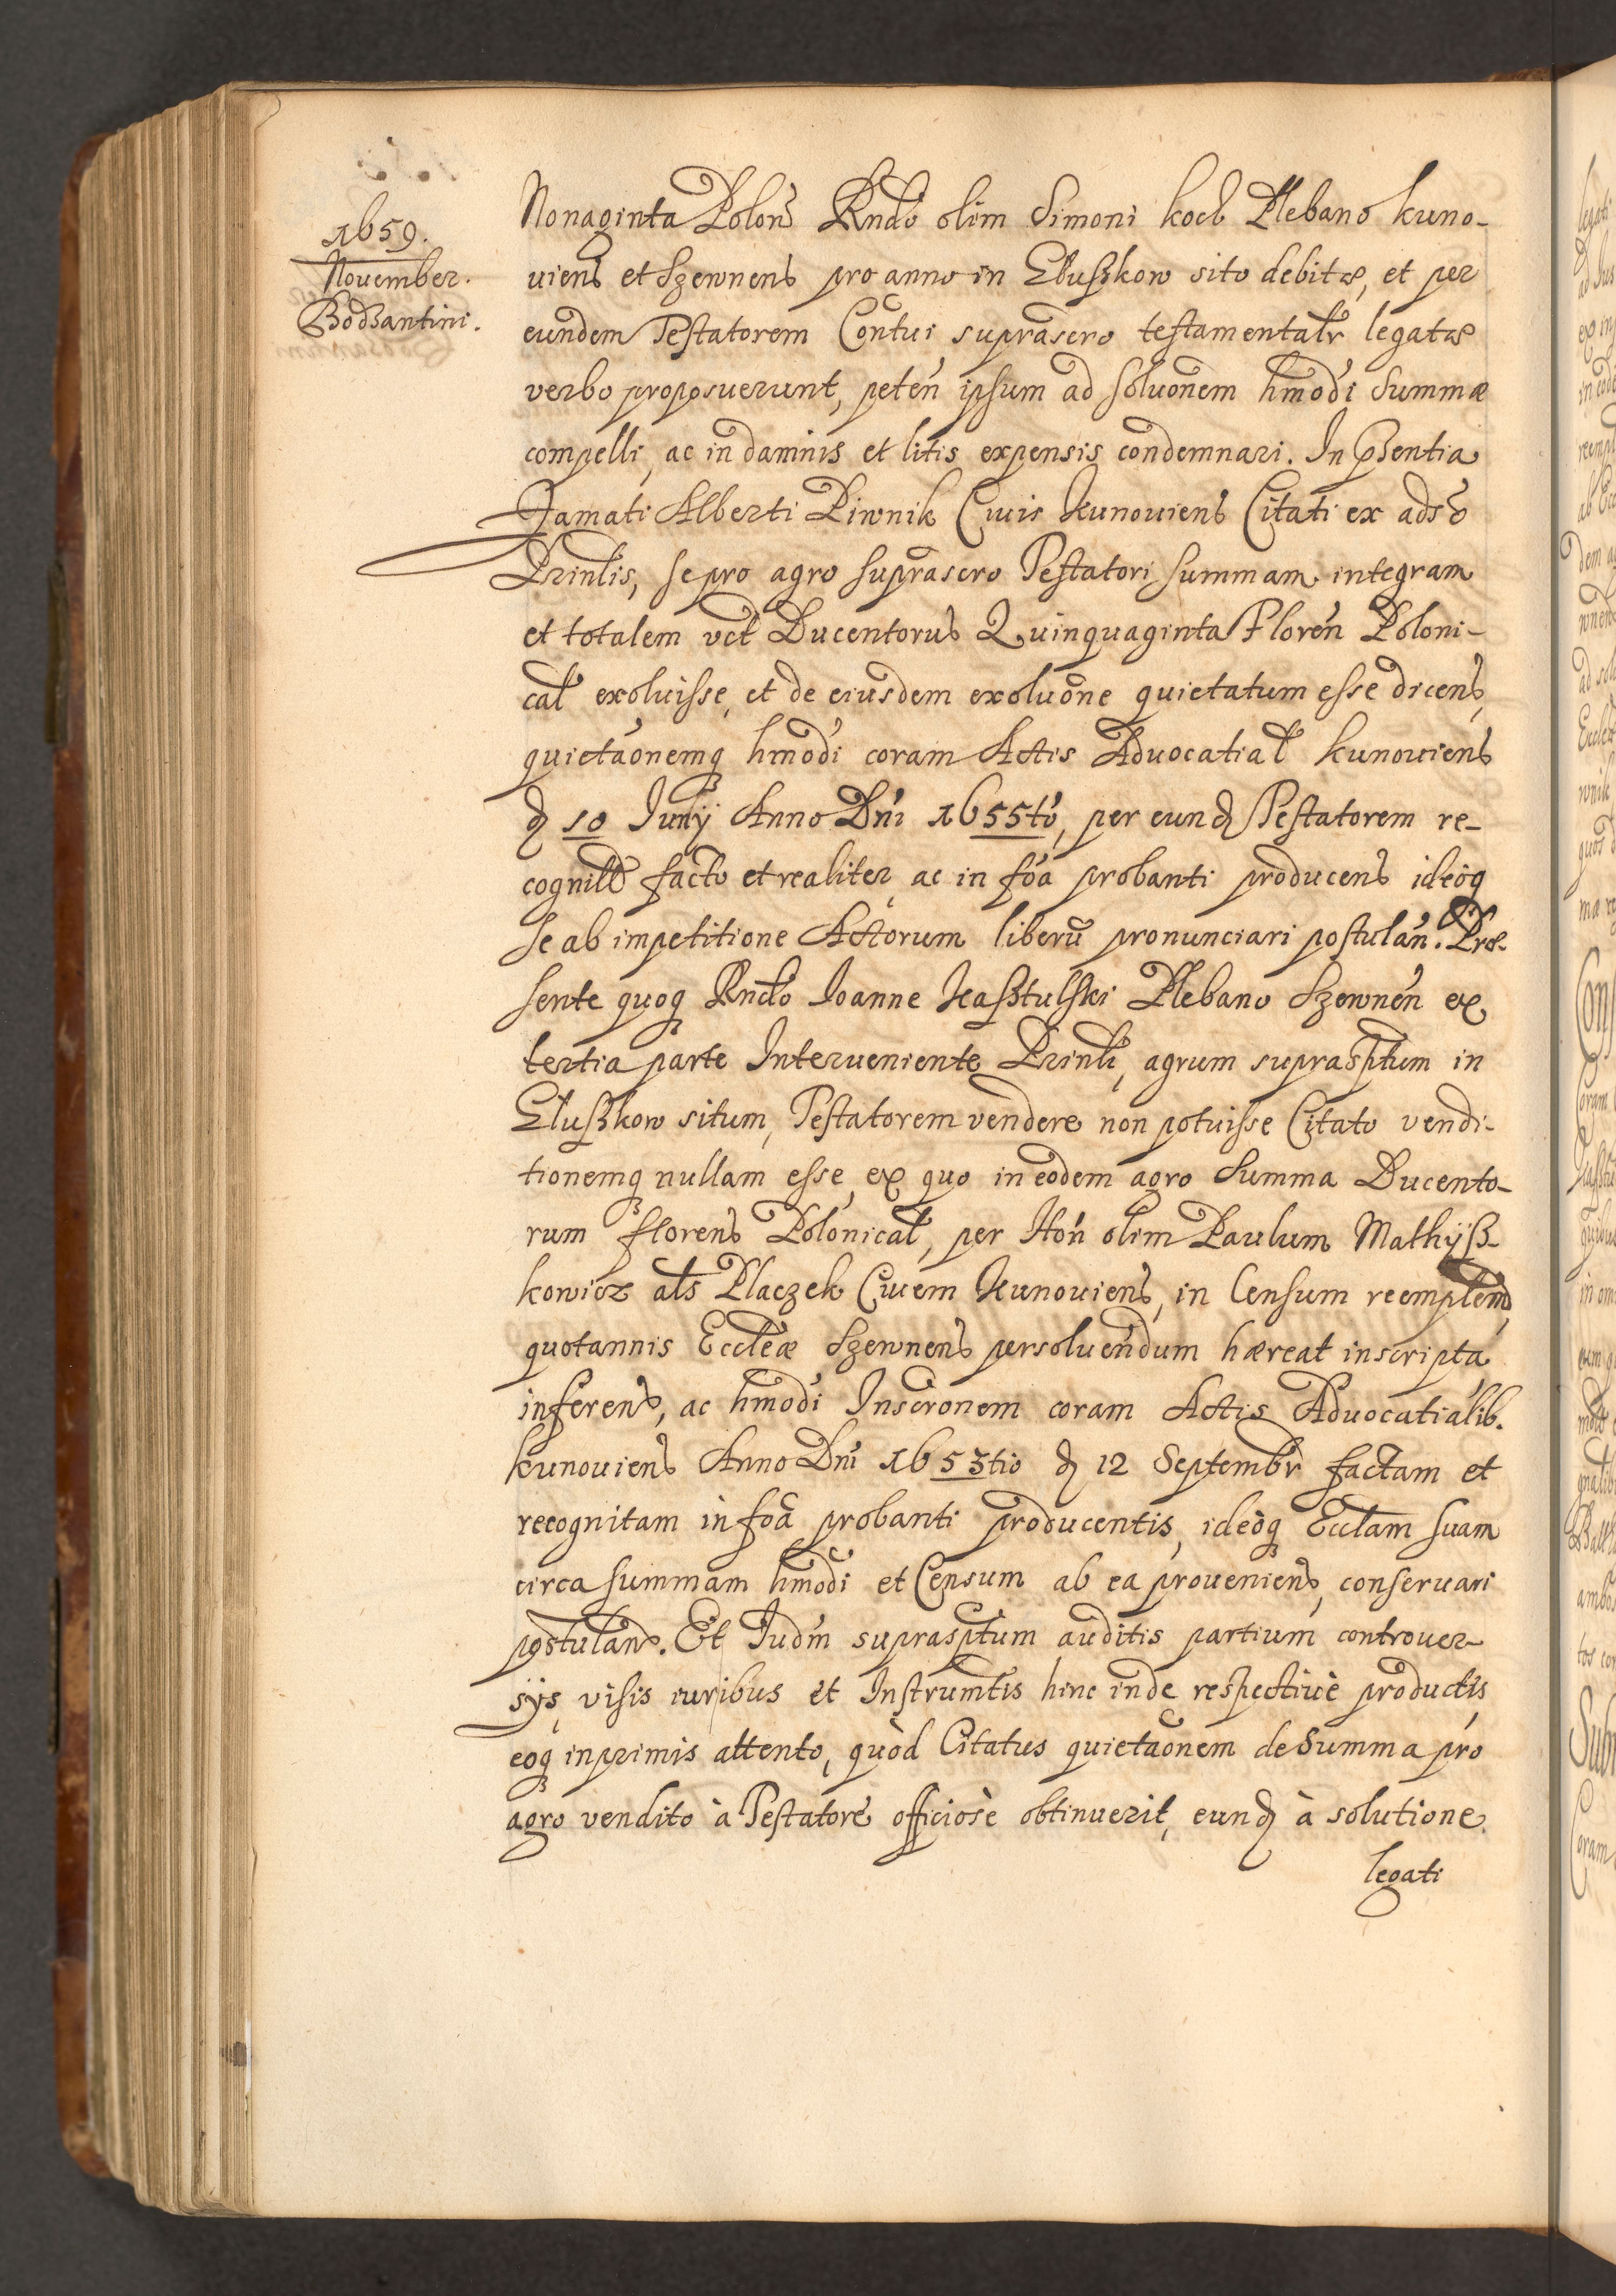 1659.
November.
Bodzantini.
Nonaginta Polon Rndo olim Simoni koel Plebano kuno-
uiens et Szewnens pro anno in Eluszkow sito debitæ, et per
eundem Testatorem Contui suprascro testamentalr legatæ
verbo proposuerunt, peten ipsum ad soluonem hmodi Summæ
compelli, ac in damnis et litis expensis condemnari. In pñsentia
Famati Alberti Piwnik Ciuis Kunouiens Citati ex adso
Prinlis, se pro agro suprascro Testatori summam integram
et totalem vct Ducentorum Quinquaginta Floren Poloni-
cal exoluisse, et de eiusdem exoluone quietatum esse dicens,
quietaonemq hmodi coram Actis Aduocatial kunouiens
d 10 Iunij Anno Dni 1655to, per eund Testatorem re-
cognitæ facto et realiter, ac in foa probanti producens ideoq
se ab impetitione Actorum liberu pronunciari postulan. Præ-
sente quoq Rndo Ioanne Kasztulski Plebano Szewnen ex
tertia parte Interueniente Prinli, agrum suprasptum in
Eluszkow situm, Testatorem vendere non potuisse Citato vendi-
tionemq nullam esse, ex quo in eodem agro Summa Ducento-
rum florens Polonical, per Hon olim Paulum Mathijsz-
kowicz als Placzek Ciuem Kunouiens, in Censum reemplem,
quotannis Eccleæ Szewnens persoluendum hæreat inscripta
inferens, ac hmodi Inscronem coram Actis Aduocatialib.
kunouiens Anno Dni 1653tio d 12 Septembr factam et
recognitam in foa probanti producentis, ideoq Ecclam suam
circa summam hmodi et Censum ab ea proueniens, conseruari
postulan. Et Iudm suprasptum auditis partium controuer-
sijs, visis iuribus et Instrumtis hinc inde respectiuè productis,
eoq inprimis attento, quòd Citatus quietaonem de Summa pro
agro vendito à Testatore officiosè obtinuerit, eund à solutione
legati